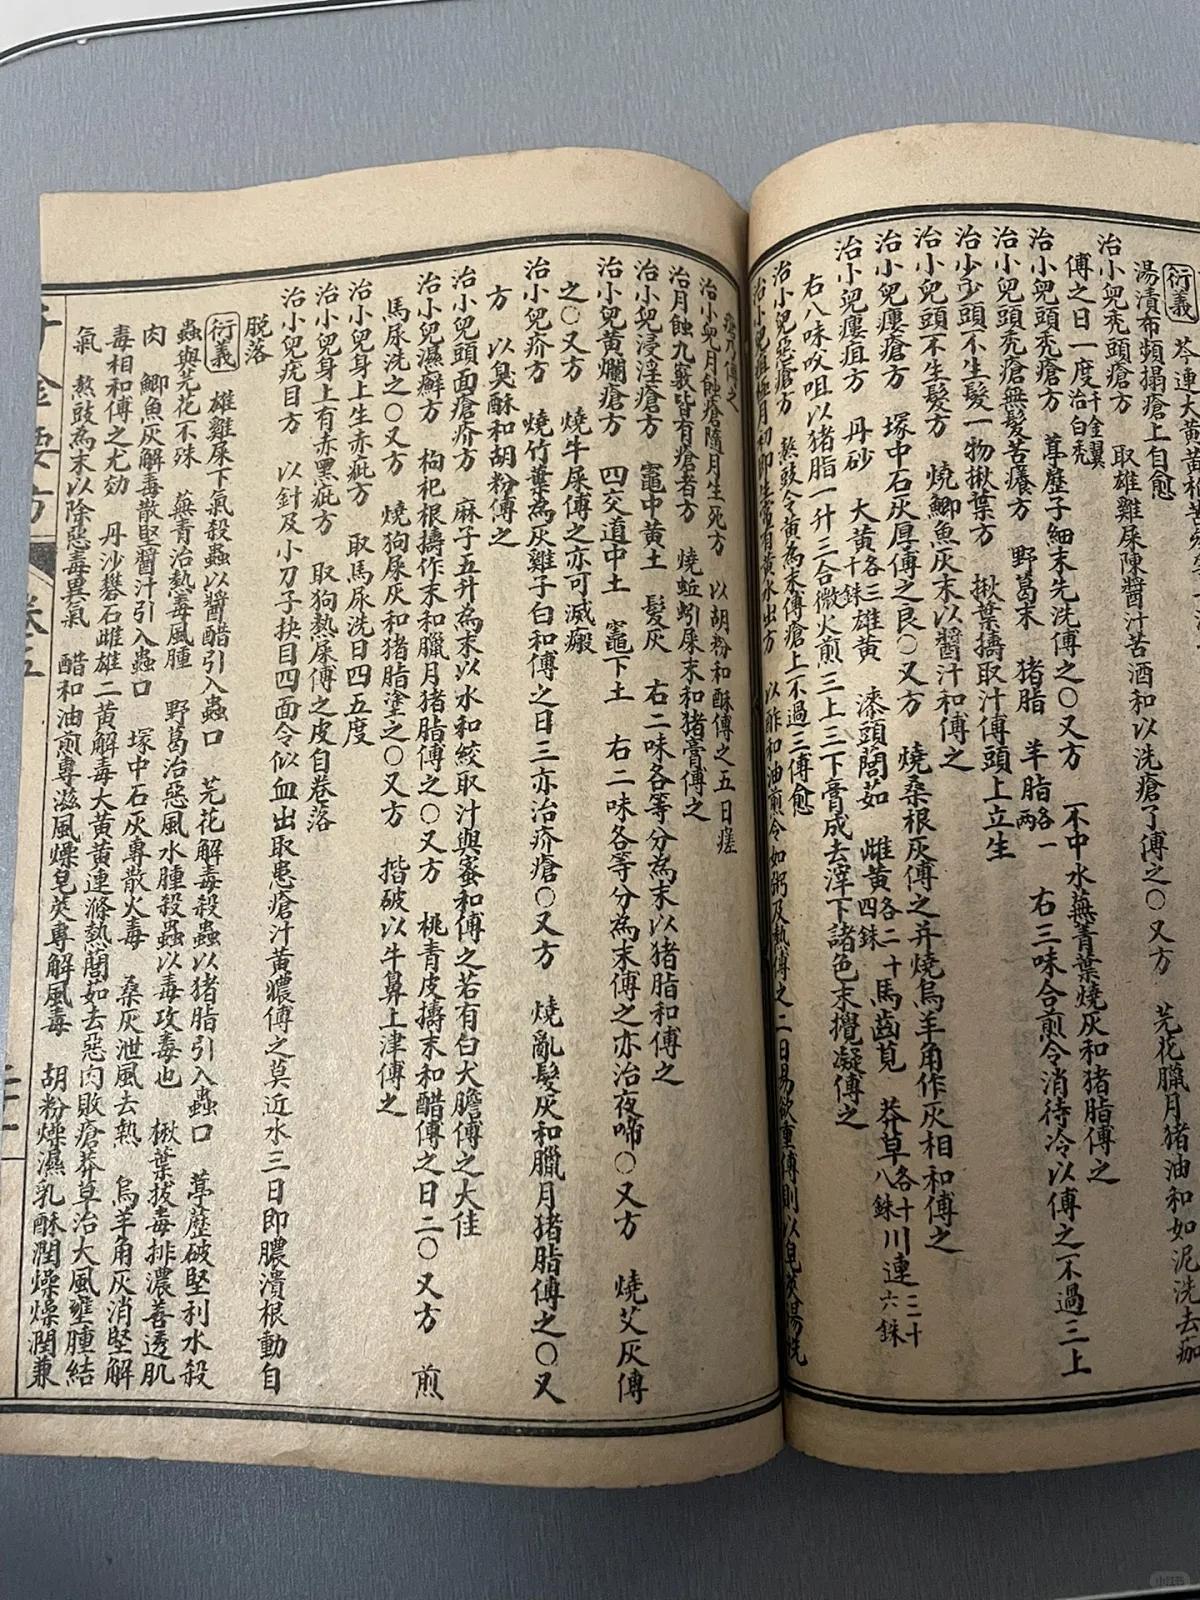 衍義 芩連大黃黃柏苦
湯漬布頻搨瘡上自愈
治小兒禿頭瘡方 取雄雞屎陳醬汁苦酒和以洗瘡了傅之○又方 芫花臘月猪油和如泥洗去痂
傅之日一度千金翼治白禿
治小兒頭禿瘡方 葶藶子細末先洗傅之○又方 不中水蕪菁葉燒灰和猪脂傅之
治小兒頭禿瘡無髮苦癢方 野葛末 猪脂 羊脂各一兩 右三味合煎令消待冷以傅之不過三上
治少小頭不生髮一物楸葉方 楸葉擣取汁傅頭上立生
治小兒頭不生髮方 燒鯽魚灰末以醬汁和傅之
治小兒瘻瘡方 塚中石灰厚傅之良○又方 燒桑根灰傅之并燒烏羊角作灰相和傅之
治小兒瘻疽方 丹砂 大黃各三十銖 雄黃 漆頭䕡茹 雌黃各二十四銖 馬齒莧 莽草各十八銖 川連三十六銖
右八味㕮咀以猪脂一升三合微火煎三上三下膏成去滓下諸色末攪凝傅之
治小兒惡瘡方 熬豉令黃為末傅瘡上不過三傅愈
治小兒疽極月初即生常有黃水出方 以酢和油煎令如粥及熱傅之二日易欲重傅則以皂莢湯洗
瘡乃傅之
治小兒月蝕瘡隨月生死方 以胡粉和酥傅之五日瘥
治月蝕九竅皆有瘡者方 燒蚯蚓屎末和猪膏傅之
治小兒浸淫瘡方 竈中黃土 髮灰 右二味各等分為末以猪脂和傅之
治小兒黃爛瘡方 四交道中土 竈下土 右二味各等分為末傅之亦治夜啼○又方 燒艾灰傅
之○又方 燒牛屎傅之亦可滅瘢
治小兒疥方 燒竹葉為灰雞子白和傅之日三亦治疥瘡○又方 燒亂髮灰和臘月猪脂傅之○又
方 以臭酥和胡粉傅之
治小兒頭面瘡疥方 麻子五升為末以水和絞取汁與蜜和傅之若有白犬膽傅之大佳
治小兒濕癬方 枸杞根擣作末和臘月猪脂傅之○又方 桃青皮擣末和醋傅之日二○又方 煎
馬尿洗之○又方 燒狗屎灰和猪脂塗之○又方 揩破以牛鼻上津傅之
治小兒身上生赤疵方 取馬尿洗日四五度
治小兒身上有赤黑疵方 取狗熱屎傅之皮自卷落
治小兒疣目方 以針及小刀子抉目四面令似血出取患瘡汁黃膿傅之莫近水三日即膿潰根動自
脫落
衍義 雄雞屎下氣殺蟲以醬醋引入蟲口 芫花解毒殺蟲以猪脂引入蟲口 葶藶破堅利水殺
蟲與芫花不殊 蕪青治熱毒風腫 野葛治惡風水腫殺蟲以毒攻毒也 楸葉拔毒排濃善透肌
肉 鯽魚灰解毒散堅醬汁引入蟲口 塚中石灰專散火毒 桑灰泄風去熱 烏羊角灰消堅解
毒相和傅之尤効 丹沙礬石雌雄二黃解毒大黃黃連滌熱䕡茹去惡肉敗瘡莽草治大風壅腫結
氣 熬豉為末以除惡毒異氣 醋和油煎專滋風燥皂莢專解風毒 胡粉燥濕乳酥潤燥燥潤兼